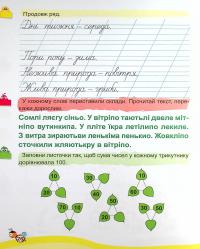 Продовж ряд.
Дні тижня – середа.
Пори року – зима.
Нежива природа – повітря.
Жива природа – гриби.
У кожному слові переставили склади. Прочитай текст, пере-
кажи дорослим.
Сомлі лясгу сіньо. У вітріпо таютьлі двеле міт-
ніпо вутинкипа. У пліте їкра летілипо лекиле.
З витра зираютьви ленькіма пенькио. Жовкліпо
сточкили жляютькру в вітріпо.
Заповни листочки так, щоб сума чисел у кожному трикутнику
дорівнювала 100.
10
30
10
30
40
20
38
70
50
20